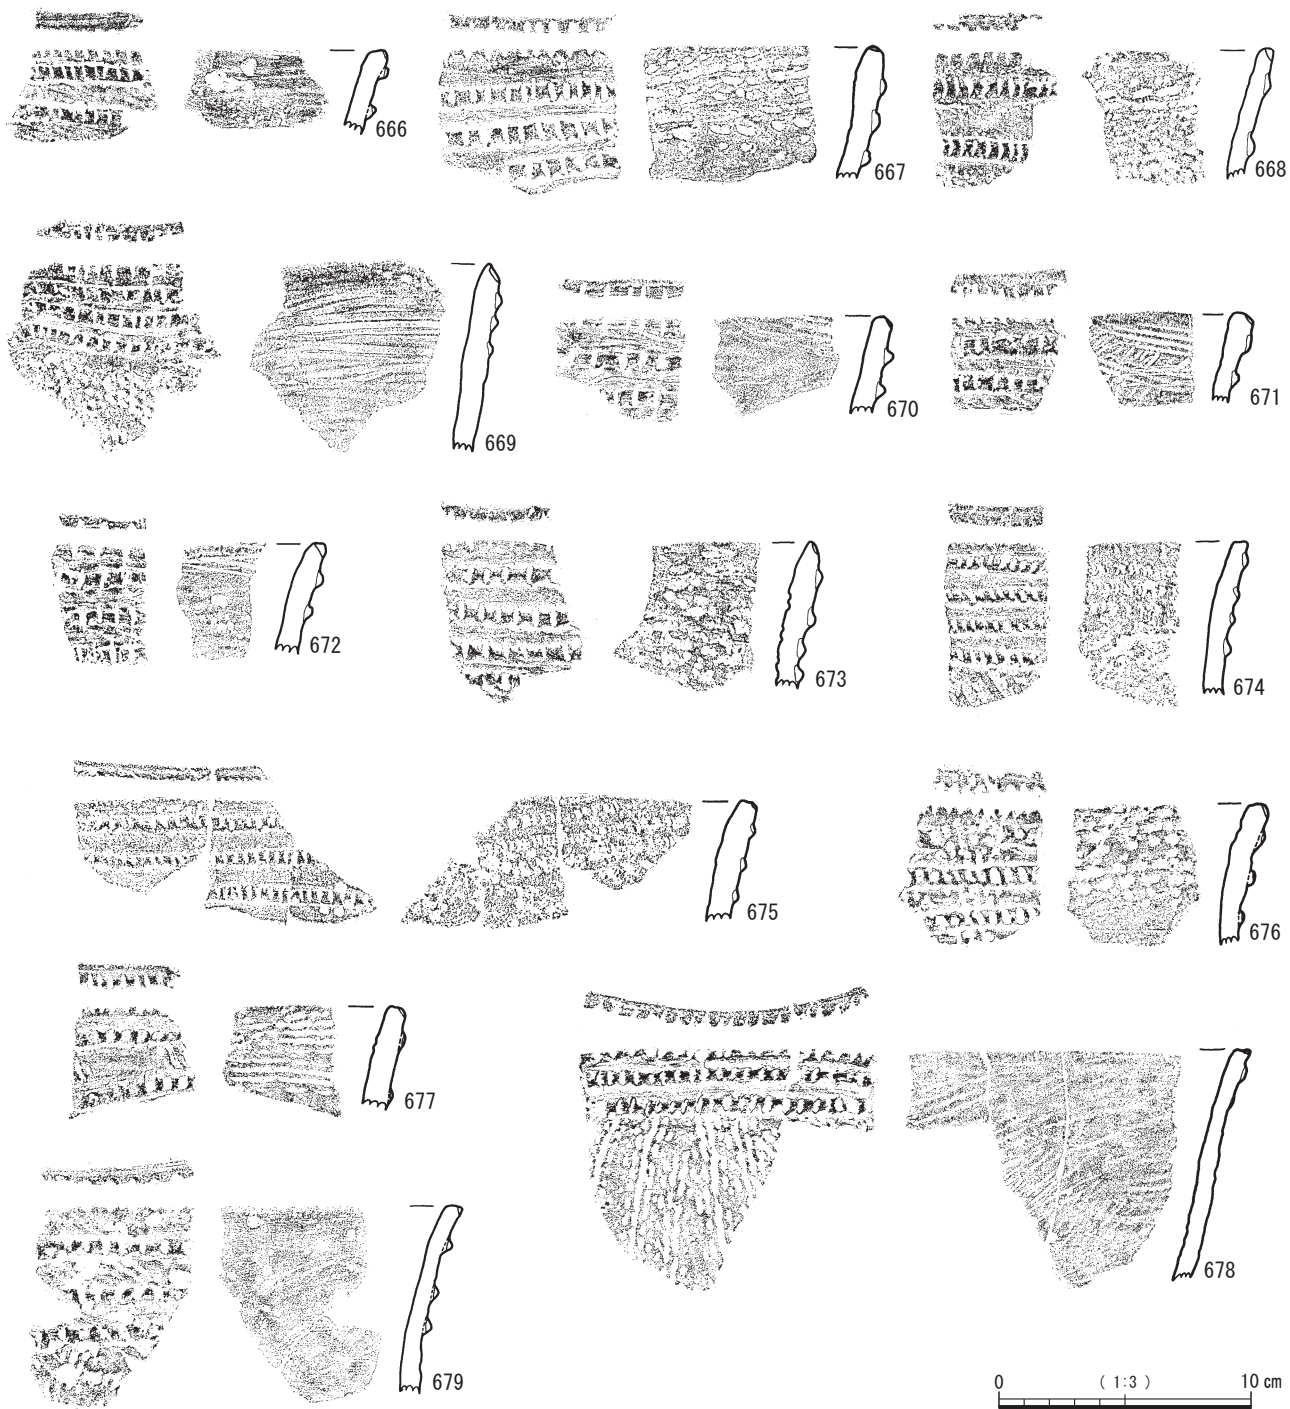 666
667
668
669
670
671
672
673
674
675
676
677
678
679
0 ( 1:3 ) 10 cm